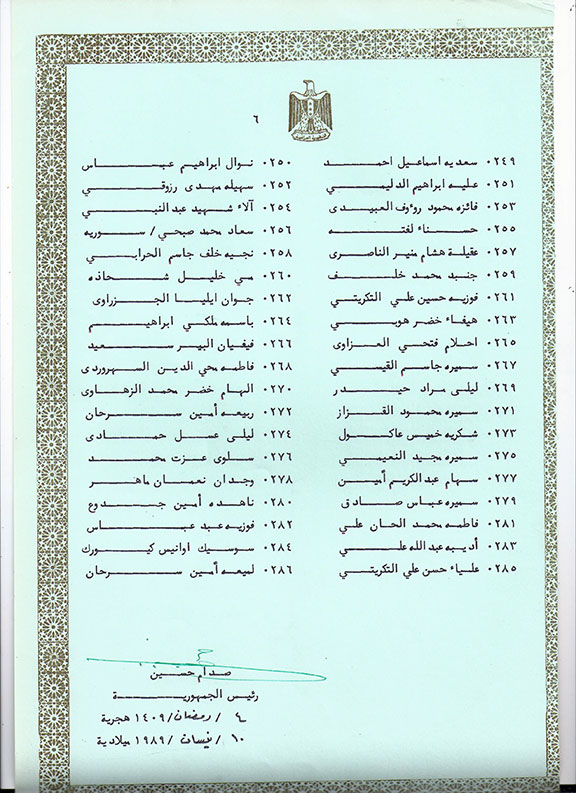 ٦
٢٤٩. سعديه اسماعيل احمد ٢٥٠. نوال ابراهيم عباس
٢٥١. عليه ابراهيم الدليمي ٢٥٢. سهيله مهدى رزوقي
٢٥٣. فائزه محمود روءوف العبيدى ٢٥٤. آلاء شهيد عبد النبي
٢٥٥. حسناء لفته ٢٥٦. سعاد محمد صبحي / سوريه
٢٥٧. عقيلة هشام منير الناصرى ٢٥٨. نجيه خلف جاسم الحرابي
٢٥٩. جنبد محمد خلف ٢٦٠. مي خليل شحاذه
٢٦١. فوزيه حسين علي التكريتي ٢٦٢. جوان ايليا الجزراوى
٢٦٣. هيفاء خضر هوبي ٢٦٤. باسمه ملكي ابراهيم
٢٦٥. احلام فتحي العزاوى ٢٦٦. فيفيان البير سعيد
٢٦٧. سميره جاسم القيسي ٢٦٨. فاطمه محي الدين السهروردى
٢٦٩. ليلى مراد حيدر ٢٧٠. الهام خضر محمد الزهاوى
٢٧١. سميره محمود القزاز ٢٧٢. ربيعه أمين سرحان
٢٧٣. شكريه خميس عاكول ٢٧٤. ليلى عسل حمادى
٢٧٥. سميره مجيد النعيمي ٢٧٦. سلوى عزت محمد
٢٧٧. سهام عبد الكريم أمين ٢٧٨. وجدان نعمان ماهر
٢٧٩. سميره عباس صادق ٢٨٠. ناهده أمين جدوع
٢٨١. فاطمه محمد الحان علي ٢٨٢. فوزيه عبد عباس
٢٨٣. أديبه عبد الله علي ٢٨٤. سوسيك اوانيس كيورك
٢٨٥. علياء حسن علي التكريتي ٢٨٦. لميعه أمين سرحان
صدام حسين
رئيس الجمهورية
٤ / رمضان / ١٤٠٩ هجرية
١٠ / نيسان / ١٩٨٩ ميلادية